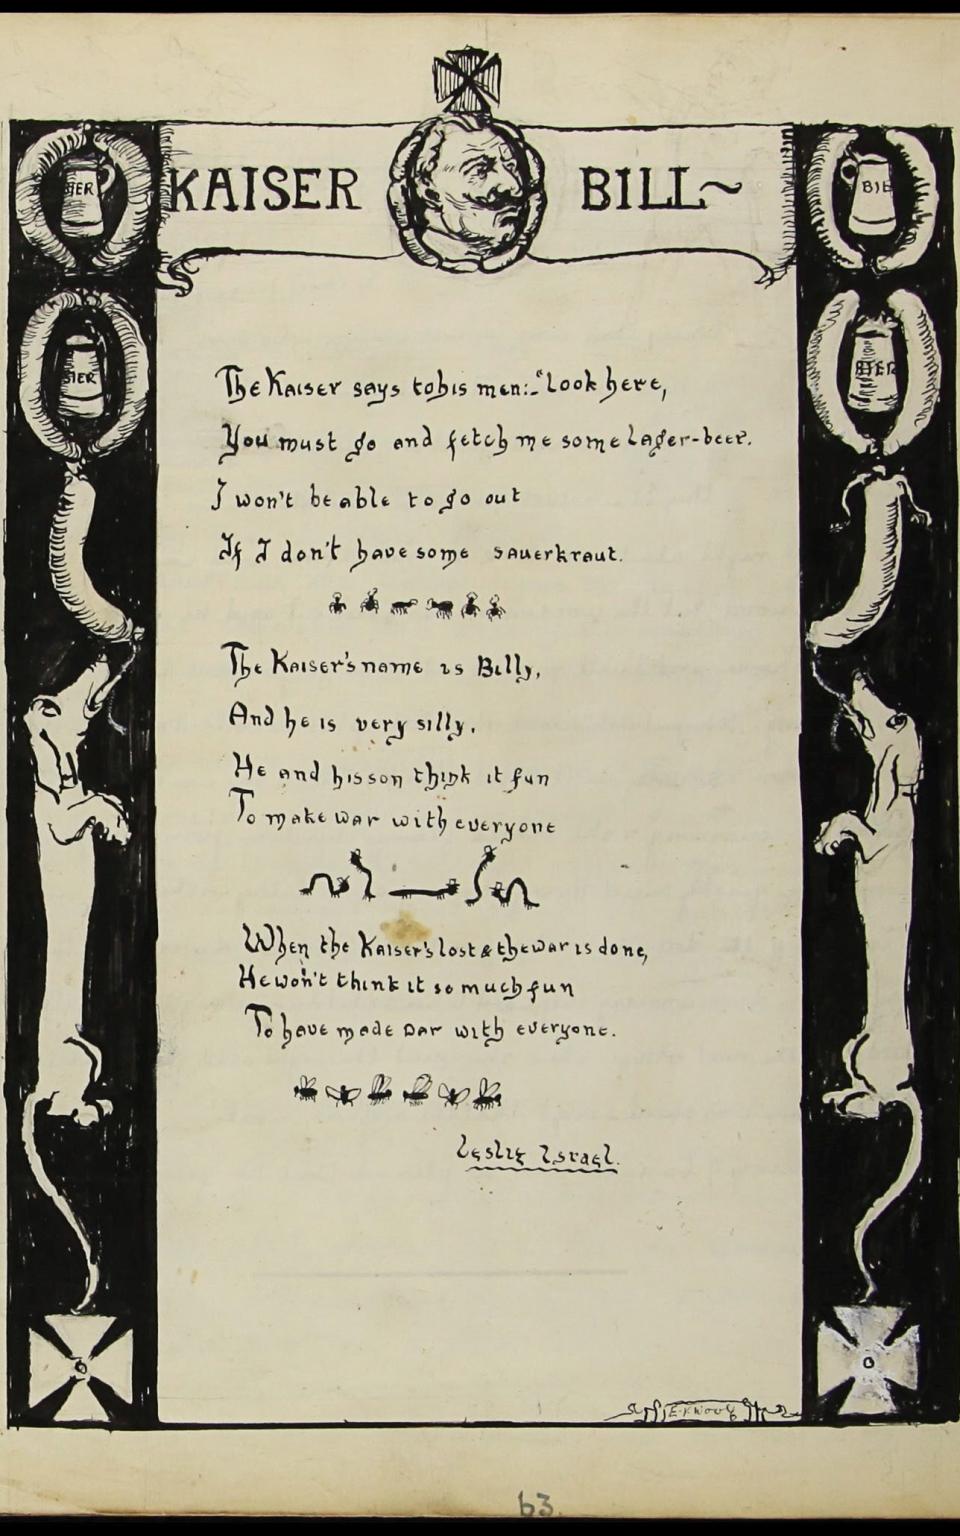 KAISER BILL~
BIER
BIE
BIER
BIER
The Kaiser says to his men:-"Look here,
You must go and fetch me some lager-beer.
I won't be able to go out
If I don't have some sauerkraut.
The Kaiser's name is Billy,
And he is very silly.
He and his son think it fun
To make war with everyone
When the Kaiser's lost & the war is done,
He won't think it so much fun
To have made war with everyone.
Leslie Israel.
63.